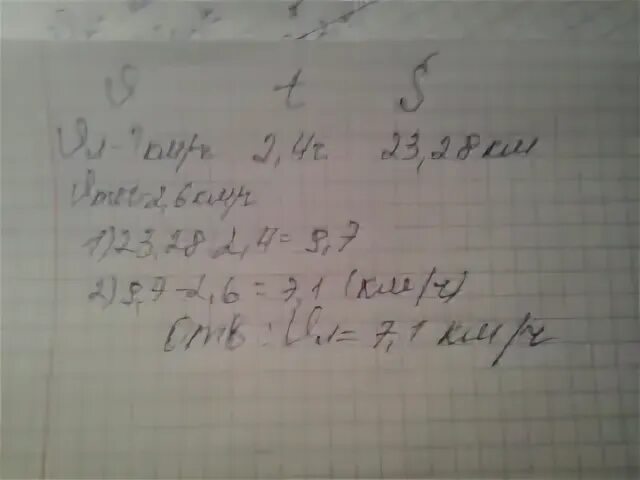 V t S
Vл - ? км/ч 2,4ч 23,28 км
Vтеч 2,6 км/ч
1) 23,28 : 2,4 = 9,7
2) 9,7 - 2,6 = 7,1 (км/ч)
Отв : Vл = 7,1 км/ч